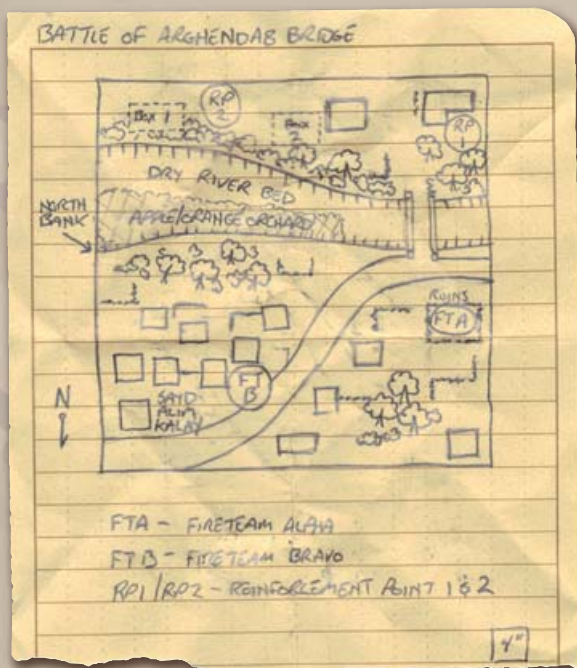 BATTLE OF ARGHENDAB BRIDGE
RP
2
BOX 1
BOX
2
RP
1
DRY RIVER BED
NORTH
BANK
APPLE/ORANGE ORCHARD
RUINS
FTA
FT
B
SAYD
ALIM
KALAY
N
FTA - FIRETEAM ALPHA
FTB - FIRETEAM BRAVO
RP1/RP2 - REINFORCEMENT POINT 1 & 2
4"